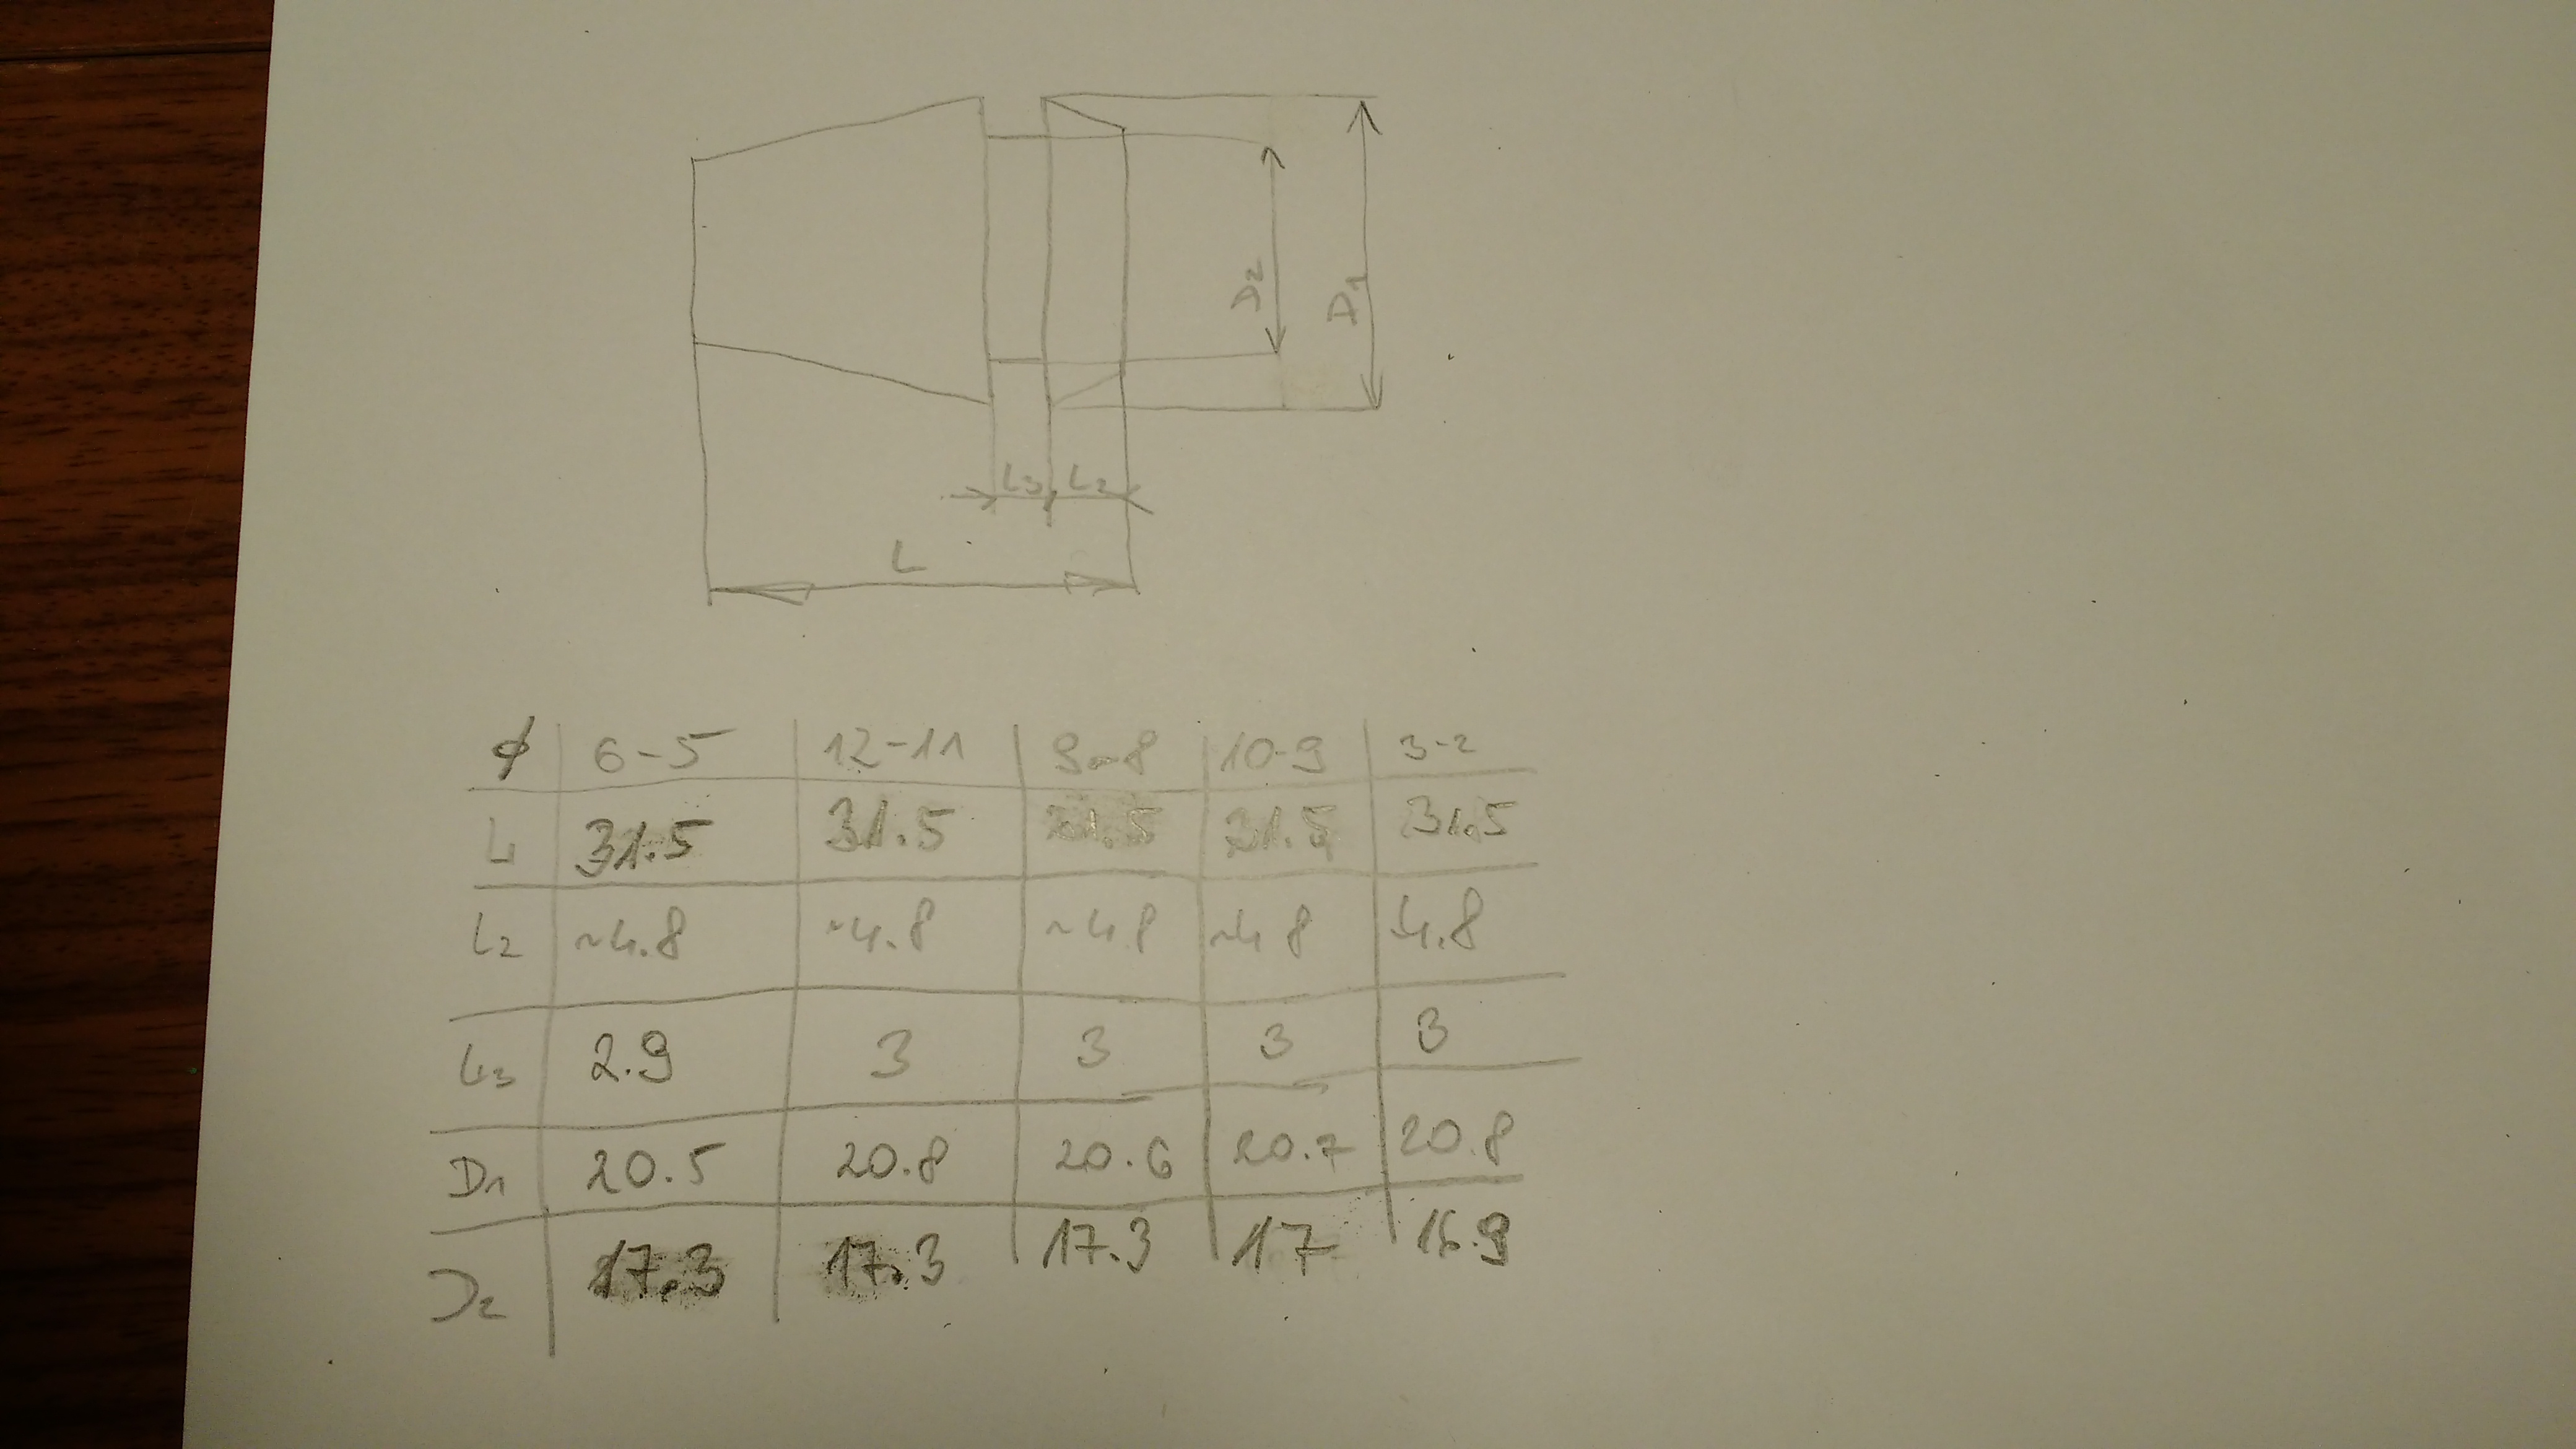 D2 D1
L3 L2
L
ϕ 6-5 12-11 9-8 10-9 3-2
L 31.5 31.5 31.5 31.5 31.5
L2 ~4.8 ~4.8 ~4.8 ~4.8 4.8
L3 2.9 3 3 3 3
D1 20.5 20.8 20.6 20.7 20.8
D2 17.3 17.3 17.3 17 16.9